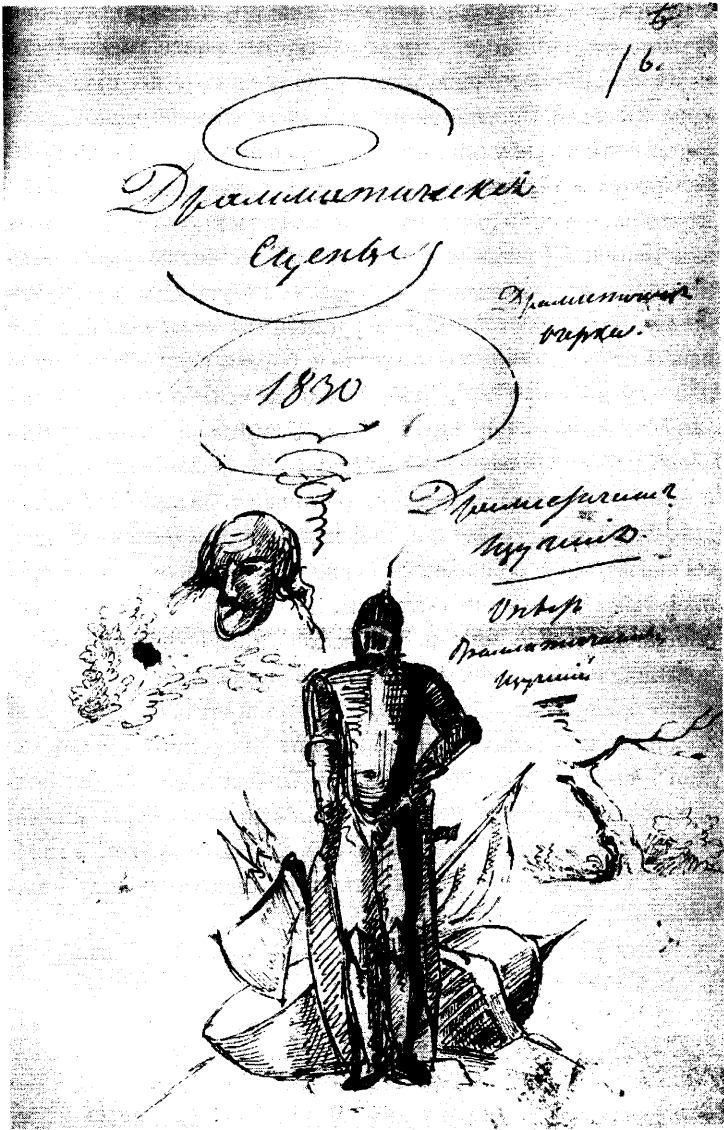 16.
Драмматическія
Сцены
1830
Драмматическіе
очерки.
Драмматическихъ
изученій.
Опытъ
Драмматическихъ
изученій